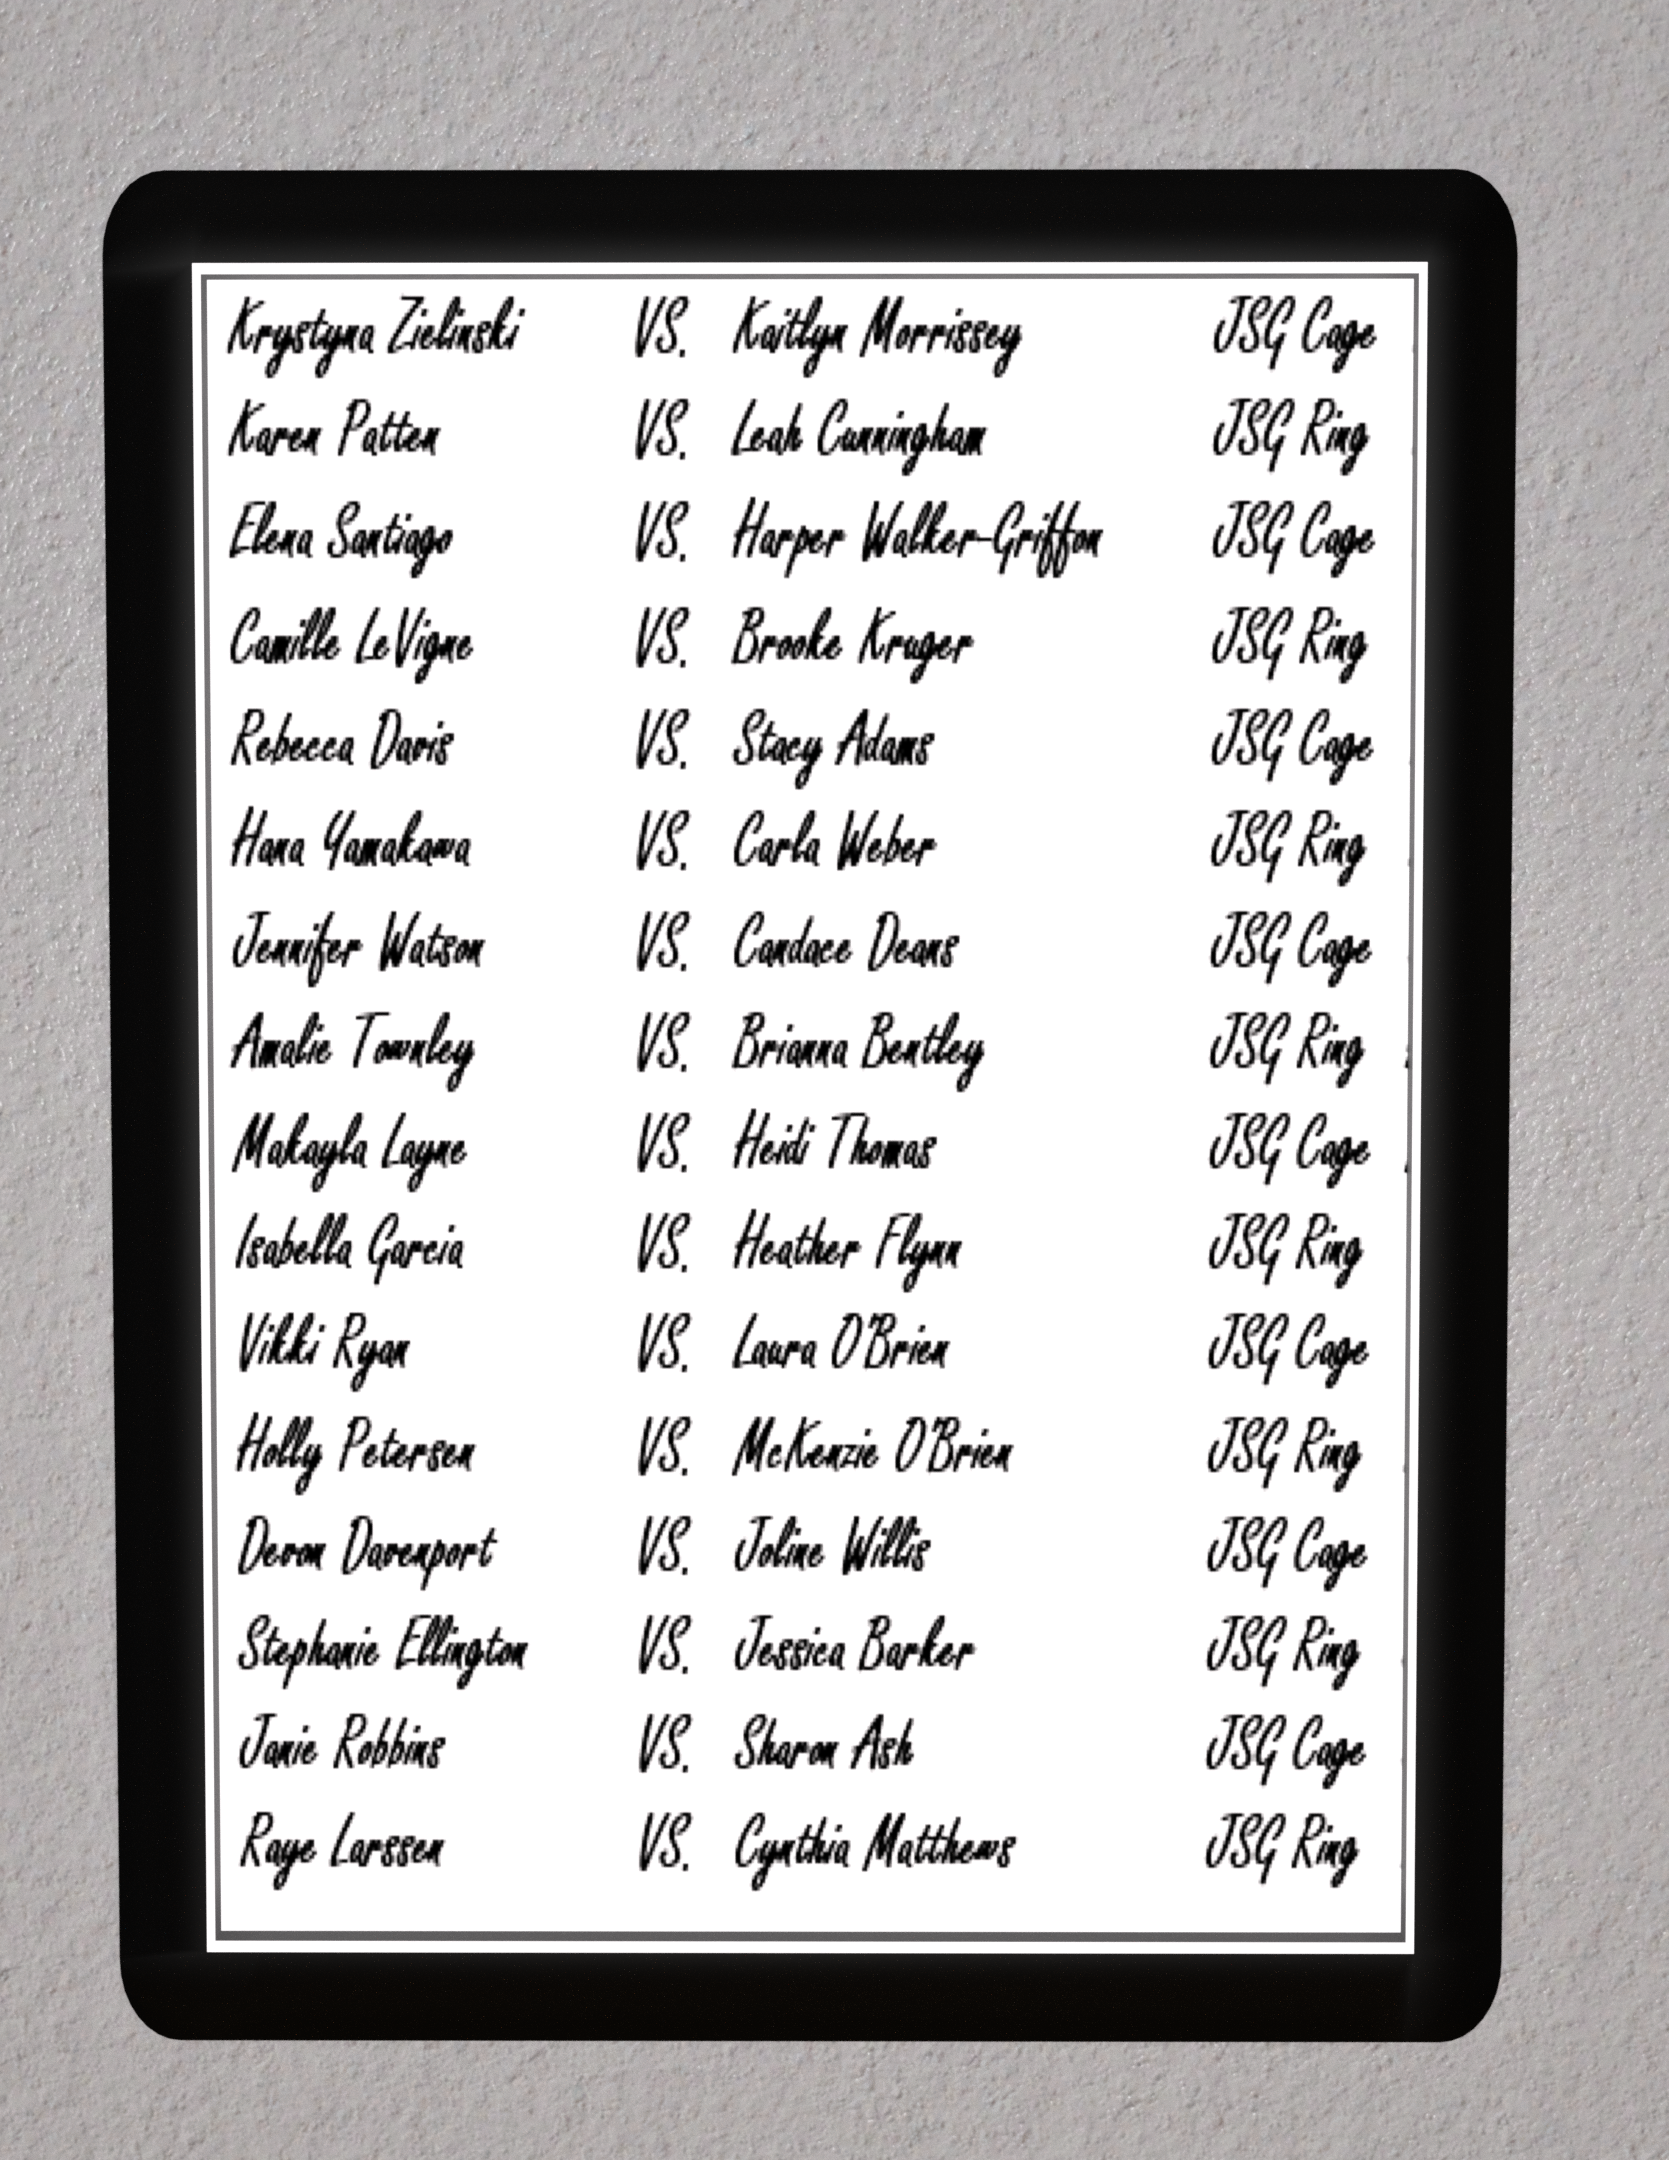 Krystyna Zielinski VS. Kaitlyn Morrissey JSG Cage
Karen Patten VS. Leah Cunningham JSG Ring
Elena Santiago VS. Harper Walker-Griffon JSG Cage
Camille LeVigne VS. Brooke Kruger JSG Ring
Rebecca Davis VS. Stacy Adams JSG Cage
Hana Yamakawa VS. Carla Weber JSG Ring
Jennifer Watson VS. Candace Deans JSG Cage
Amalie Townley VS. Brianna Bentley JSG Ring
Makayla Layne VS. Heidi Thomas JSG Cage
Isabella Garcia VS. Heather Flynn JSG Ring
Vikki Ryan VS. Laura O'Brien JSG Cage
Holly Petersen VS. McKenzie O'Brien JSG Ring
Devon Davenport VS. Joline Willis JSG Cage
Stephanie Ellington VS. Jessica Barker JSG Ring
Janie Robbins VS. Sharon Ash JSG Cage
Raye Larssen VS. Cynthia Matthews JSG Ring